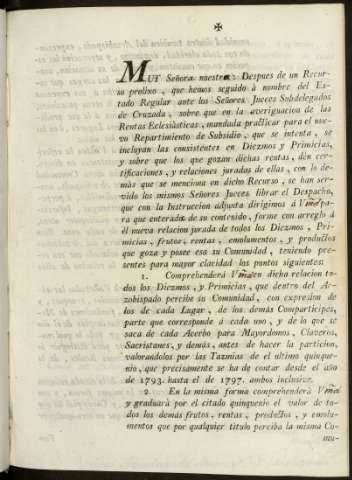 ✠
MUY Señora nuestra: Despues de un Recur-
so prolixo, que hemos seguido à nombre del Es-
tado Regular ante los Señores Jueces Subdelegados
de Cruzada, sobre que en la averiguacion de las
Rentas Eclesiàsticas, mandada pràcticar para el nue-
vo Repartimiento de Subsidio, que se intenta, se
incluyan las consistentes en Diezmos y Primicias,
y sobre que los que gozan dichas rentas, dèn cer-
tificaciones, y relaciones juradas de ellas, con lo de-
màs que se menciona en dicho Recurso, se han ser-
vido los mismos Señores Jueces librar el Despacho,
que con la Instruccion adjunta dirigimos à Vmd pa-
ra que enterada de su contenido, forme con arreglo à
èl nueva relacion jurada de todos los Diezmos, Pri-
micias, frutos, rentas, emolumentos, y productos
que goza y posee esa su Comunidad, teniendo pre-
sentes para mayor claridad los puntos siguientes:
1. Comprehenderà Vmd en dicha relacion to-
dos los Diezmos, y Primicias, que dentro del Ar-
zobispado percibe su Comunidad, con expresion de
los de cada Lugar, de los demàs Comparticipes,
parte que corresponde à cada uno, y de lo que se
saca de cada Acerbo para Mayordomos, Claveros,
Sacristanes, y demàs, antes de hacer la particion,
valorandolos por las Tazmias del ultimo quinque-
nio, que precisamente se ha de contar desde el año
de 1793. hasta el de 1797. ambos inclusive.
2. En la misma forma comprehenderà Vmd
y graduarà por el citado quinquenio el valor de to-
dos los demàs frutos, rentas, productos, y emolu-
mentos que por qualquier titulo perciba la misma Co-
mu-